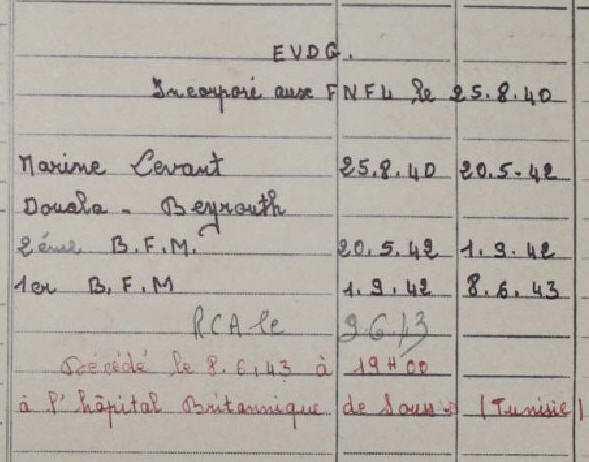 EVDG.
Incorporé aux FNFL le 25.8.40
Marine Levant 25.8.40 20.5.42
Douala - Beyrouth
2ème B.F.M. 20.5.42 1.9.42
1er B.F.M 1.9.42 8.6.43
RCA le 9.6.43
Décédé le 8.6.43 à 19H00
à l'hôpital Britannique de Sousse (Tunisie)